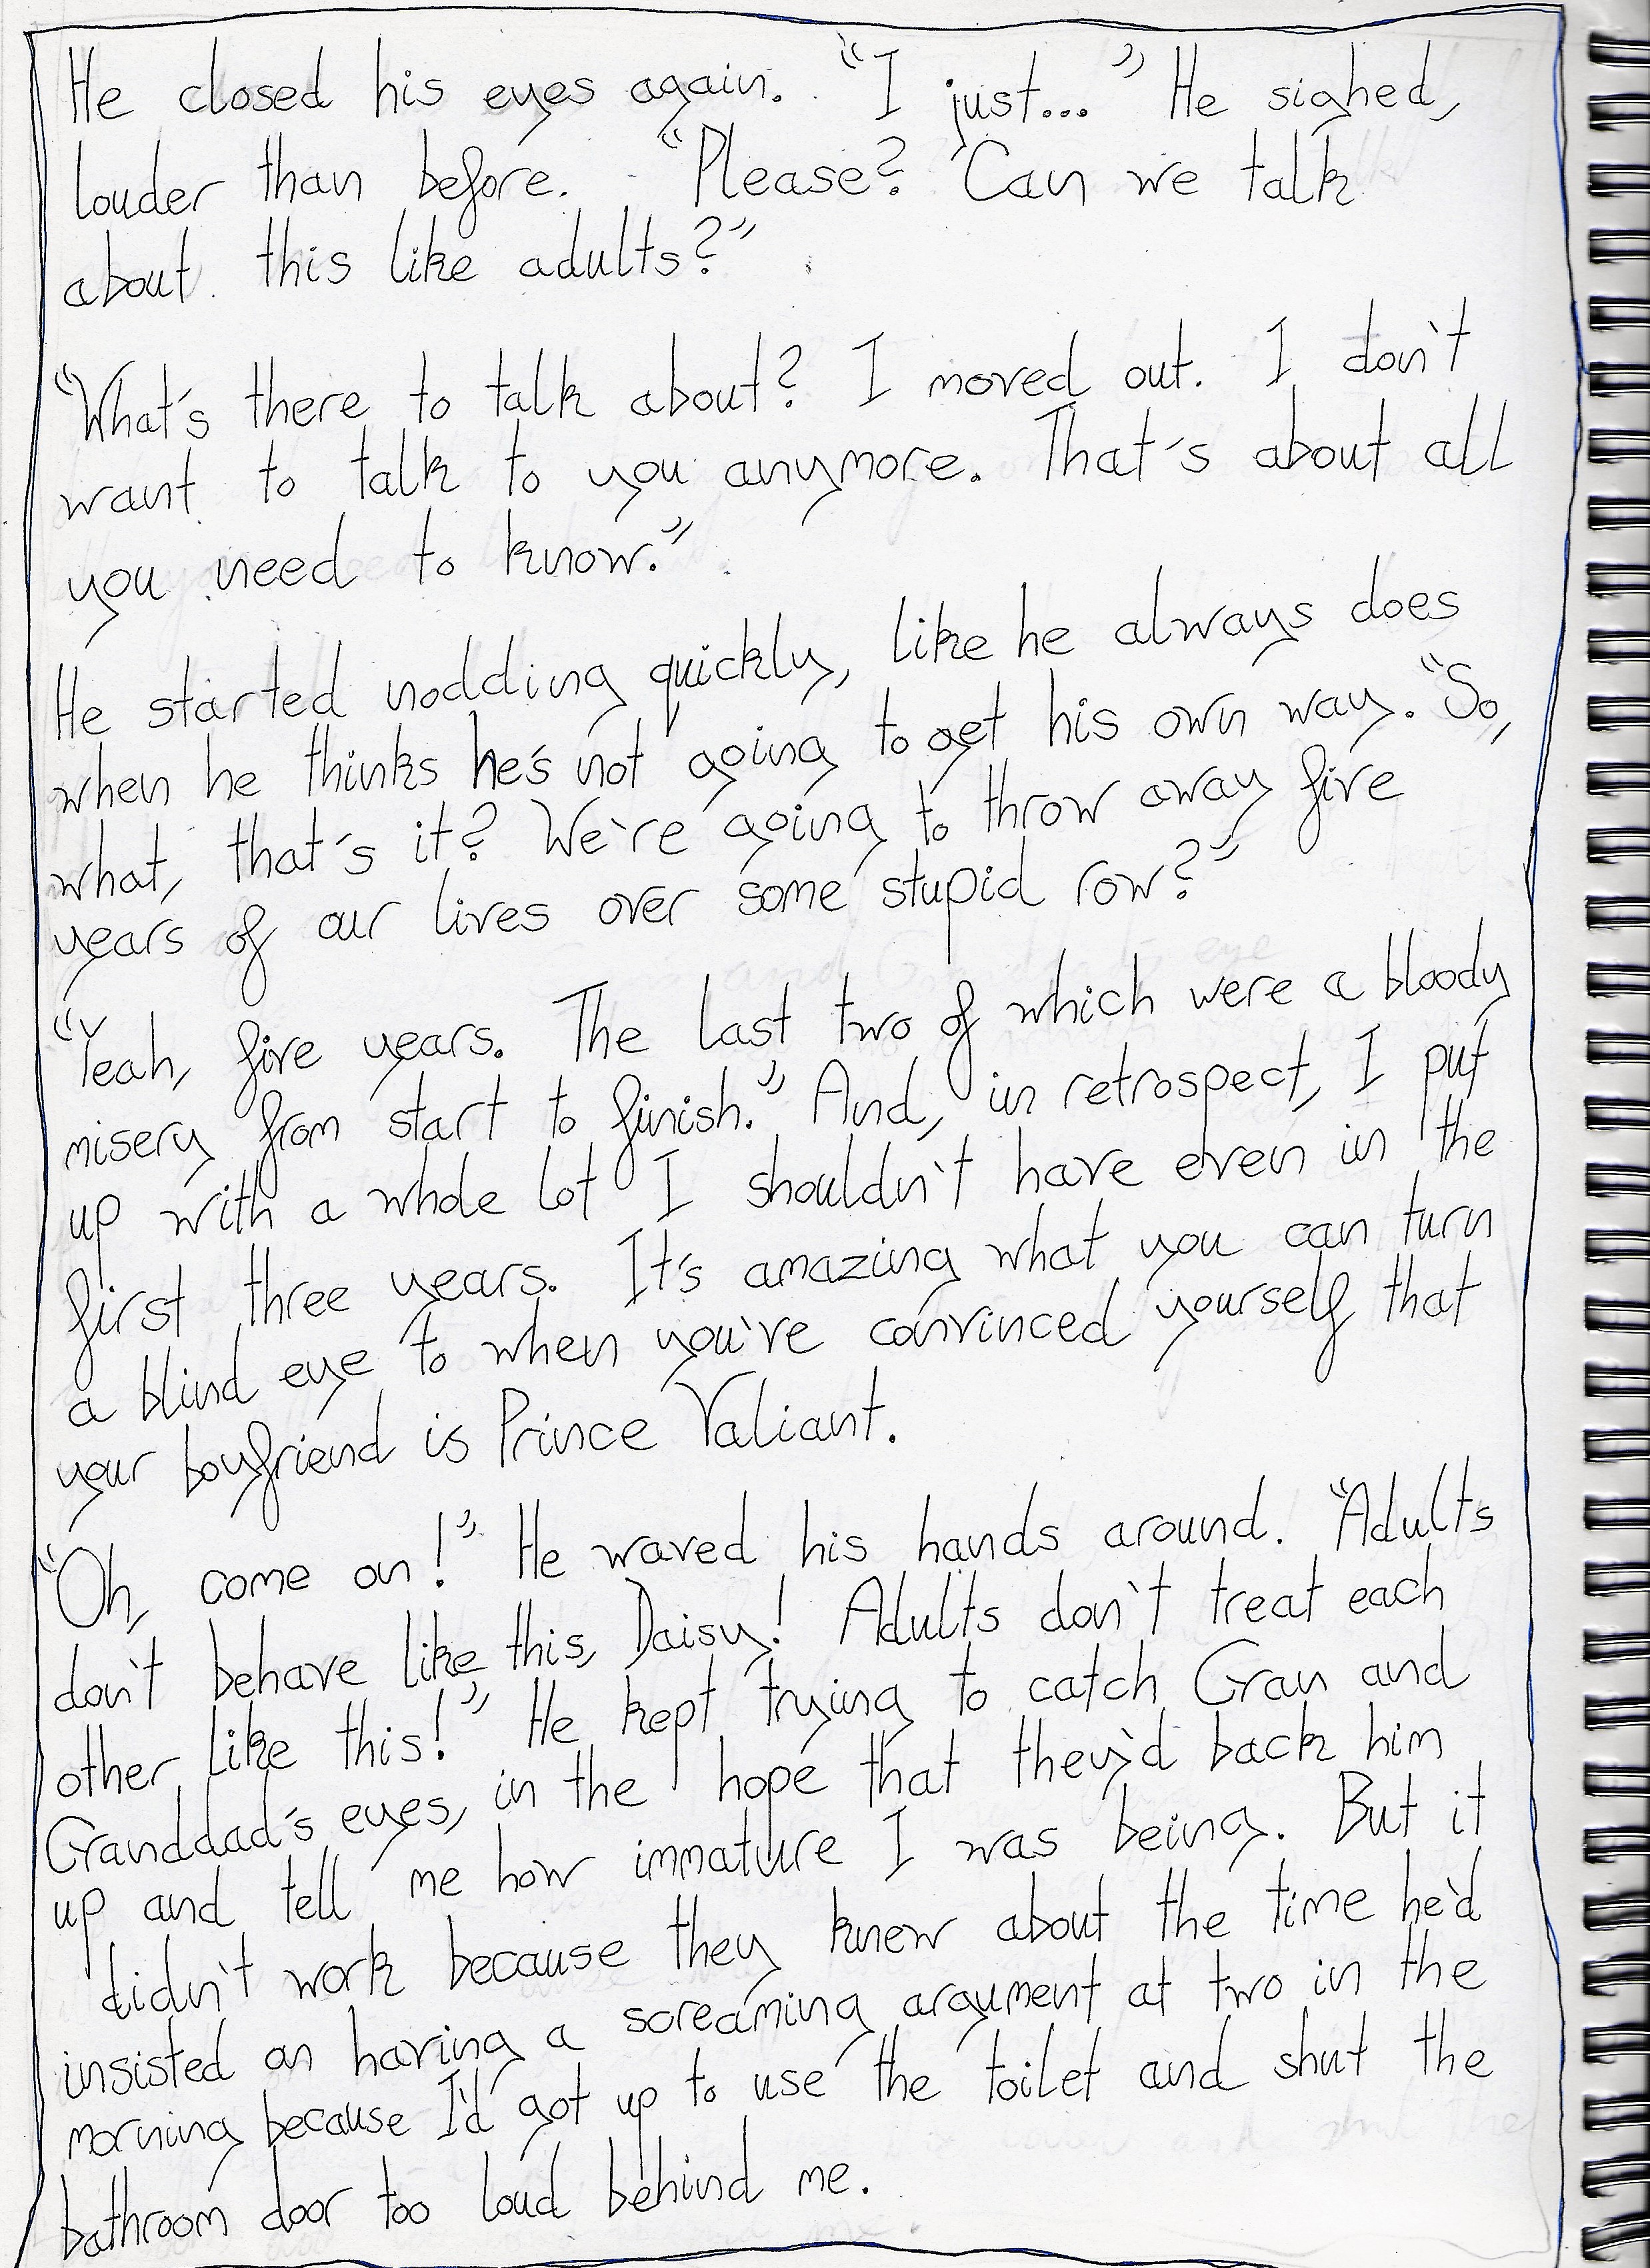 He closed his eyes again. "I just..." He sighed,
louder than before. "Please? Can we talk
about this like adults?"
"What's there to talk about? I moved out. I don't
want to talk to you anymore. That's about all
you need to know."
He started nodding quickly, like he always does
when he thinks he's not going to get his own way. "So,
what, that's it? We're going to throw away five
years of our lives over some stupid row?"
"Yeah, five years. The last two of which were a bloody
misery from start to finish." And, in retrospect, I put
up with a whole lot I shouldn't have even in the
first three years. It's amazing what you can turn
a blind eye to when you've convinced yourself that
your boyfriend is Prince Valiant.
"Oh, come on!" He waved his hands around. "Adults
don't behave like this, Daisy! Adults don't treat each
other like this!" He kept trying to catch Gran and
Granddad's eyes, in the hope that they'd back him
up and tell me how immature I was being. But it
didn't work because they knew about the time he'd
insisted on having a screaming argument at two in the
morning because I'd got up to use the toilet and shut the
bathroom door too loud behind me.